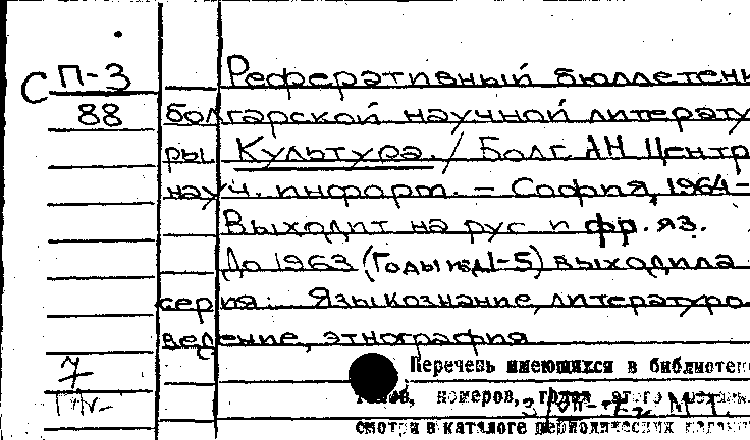 С П-3
88
Реферативный бюллетень
болгарской научной литерату
ры. Культура. / Болг. АН Центр
науч. информ. - София, 1964-
Выходит на рус и фр. яз.
До 1963 (Годы изд. 1-5) выходила
серия: Языкознание, литературо
ведение, этнография
7
Перечень имеющихся в библиотеке
томов, номеров, годов этого издан.
смотри в каталоге периодических издан